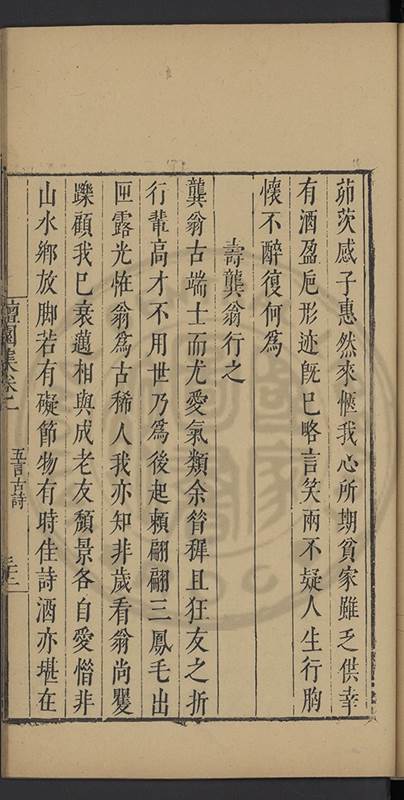 茆茨感子惠然來愜我心所期貧家雖乏供幸
有酒盈巵形迹旣已略言笑兩不疑人生行胸
懷不醉復何爲
壽龔翁行之
龔翁古端士而尤愛氣類余昝穉且狂友之折
行輩高才不用世乃爲後起賴翩翩三鳳毛出
匣露光恠翁爲古稀人我亦知非歲看翁尚矍
躒顧我已衰邁相與成老友頹景各自愛惜非
山水鄉放脚若有礙節物有時佳詩酒亦堪在
集卷二
五言古詩